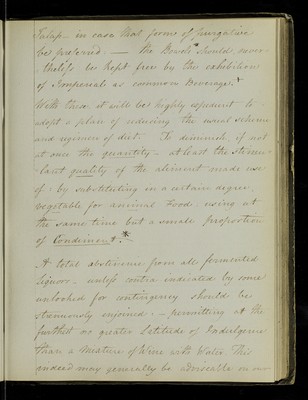 Jalap – in case that form of purgative
be preferred. — The Bowels should, never
theless be kept free by the exhibition
of Tropicals as common Beverage.+
With this it will be highly expedient to
adopt a plan of reducing the usual scheme
and regimen of diet. To diminish, if not
at once the quantity – at least the stimu-
lant quality of the aliment made use
of: by substituting in a certain degree
vegetable for animal Food, using at
the same time but a small proportion
of Condiment.*
A total abstinence from all fermented
liquors – unless contra indicated by some
unlooked for contingency should be
strenuously enjoined: – permitting at the
furthest no greater Latitude of Indulgence
than a Mixture of Wine with Water. This
indeed may generally be advisable on our